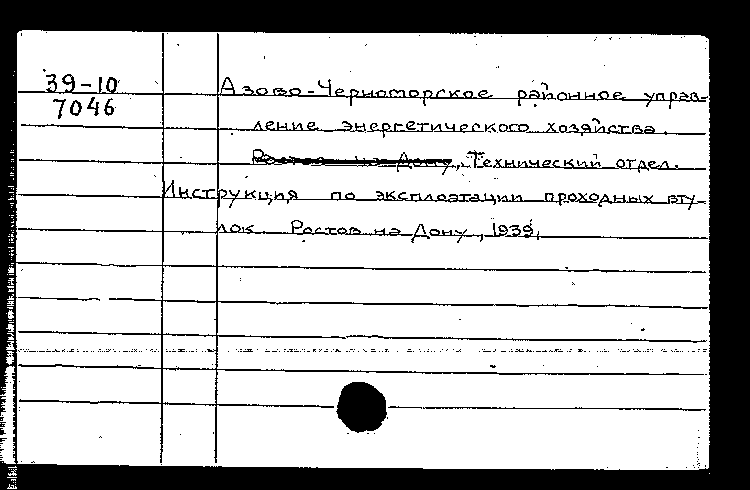 39-10
7046
Азово-Черноморское районное управ-
ление энергетического хозяйства.
Ростов на Дону, Технический отдел.
Инструкция по эксплоатации проходных вту-
лок Ростов на Дону, 1939,